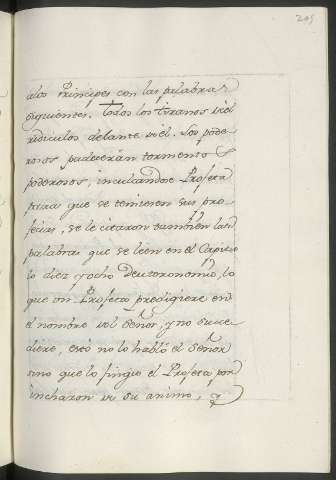 205
alos Principes con las palabras
siguientes. Todos los tiranos viel
ridiculos delante del. Los pode
rosos padecerán tormentos
poderosos, inculcandose Profeta
para que se temiesen sus pro
fecias, se le citaron tambien las
palabras que se leen en el Capitu
lo diez y ocho Deuteronomio, lo
que un Profeta predigere en
el nombre del Señor, y no suce
diere, esto no lo habló el Señor
sino que lo fingio el Profeta por
hincharon de su animo, y